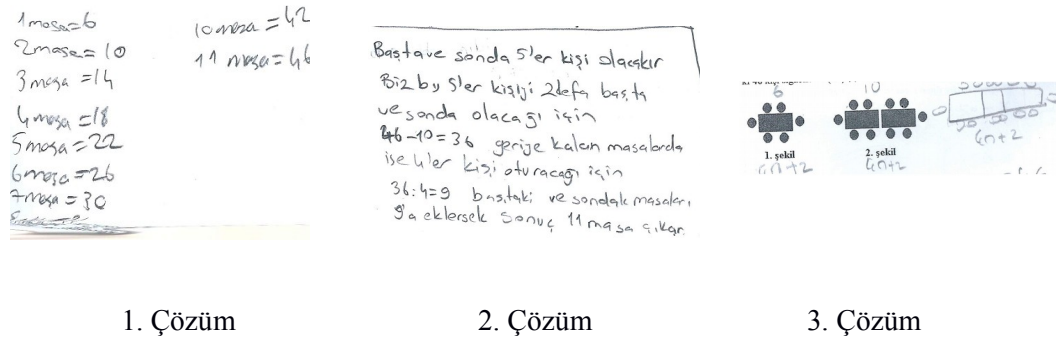 1 masa=6
2 masa=10
3 masa=14
4 masa=18
5 masa=22
6 masa=26
7 masa=30
10 masa=42
11 masa=46
Başta ve sonda 5'er kişi olacaktır
Biz bu 5'er kişiyi 2 defa başta
ve sonda olacağı için
46-10=36 geriye kalan masalarda
ise 4'er kişi oturacağı için
36:4=9 baştaki ve sondaki masaları
9'a eklersek sonuç 11 masa çıkar.
6
10
1. şekil
2. şekil
4n+2
4n+2
4n+2
1. Çözüm
2. Çözüm
3. Çözüm